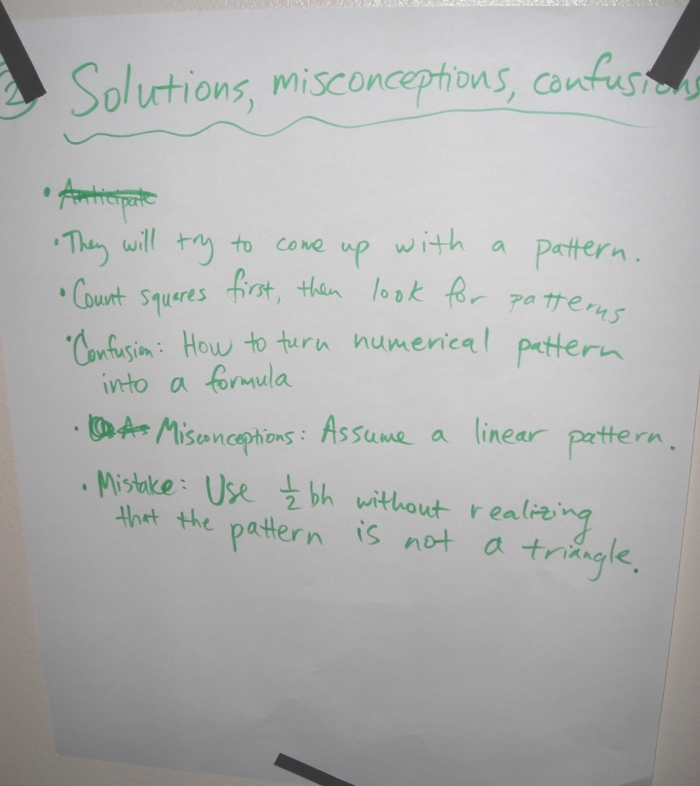 2 Solutions, misconceptions, confusions
• Anticipate
• They will try to come up with a pattern.
• Count squares first, then look for patterns
• Confusion: How to turn numerical pattern
into a formula
• Misconceptions: Assume a linear pattern.
• Mistake: Use 1/2 bh without realizing
that the pattern is not a triangle.